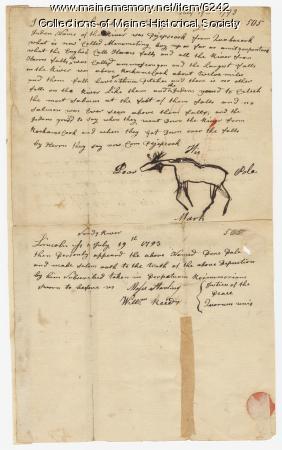 www.mainememory.net/item/6242
Collections of Maine Historical Society
505
Indian Name of the River was Pejepscook from
what is now Called Merrymeeting bay up as far as amitgunpontook
what the English Call Harris falls and all the River from
Harris falls up was Called ammoscongon and the Largest falls
on the River was above Rockamecook about twelve miles
and them falls have three Pitches and there is no other
falls on the River Like them and the Indians yousd to Catch
the most Salmon at the foot of them falls and
Salmon was Ever seen above them falls, and the
Indians yousd to say when they went Down the River from
Rockamecook and when they got Down over the falls
by Harris they say now Come Pejepscook
His
Pear Pole
Mark
Sandy River
Lincoln ss July 19th 1793
then Personly appeard the above Named
and made Solem oath to the truth of the above Deposition
by him Subscribed taken in Perpetuam Rei memoriam
Sworn to before us
Justices of the
Peace
Quorum unis